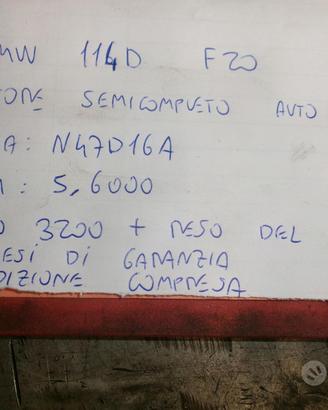 MW 114D F20
TORE SEMICOMPLETO AUTO
A: N47D16A
: 5,6000
O 3200 + RESO DEL
ESI DI GARANZIA
DIZIONE COMPRESA